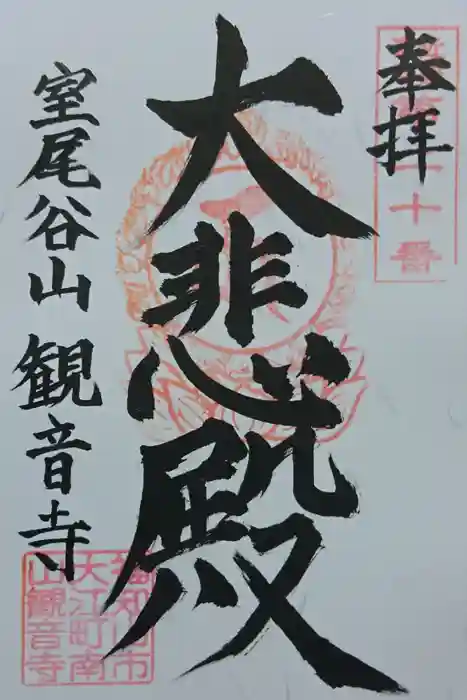 奉拝
十番
大悲心殿
室尾谷山 観音寺
福知山市
大江町南
山観音寺